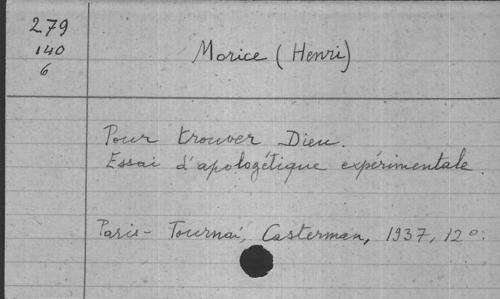 279
140
6
Morice (Henri)
Pour trouver Dieu.
Essai d'apologétique expérimentale.
Paris-Tournai, Casterman, 1937, 12°.